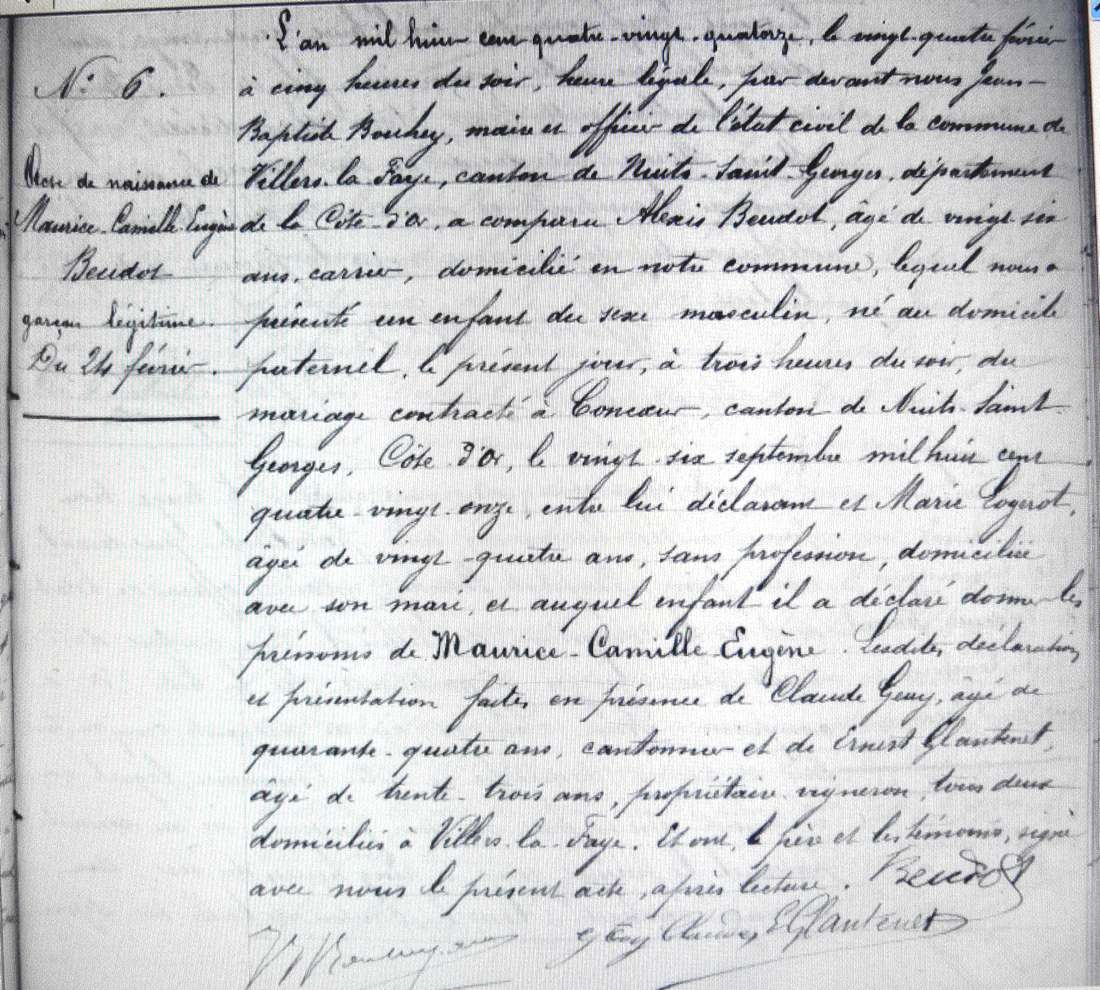 N° 6.
Acte de naissance de
Maurice-Camille-Eugène
Beudot
garçon légitime.
Du 24 février.
L'an mil huit cent quatre-vingt-quatorze, le vingt-quatre février
à cinq heures du soir, heure légale, par devant nous Jean-
Baptiste Bouhey, maire et officier de l'état civil de la commune de
Villers-la-Faye, canton de Nuits-Saint-Georges, département
de la Côte-d'Or, a comparu Alexis Beudot, âgé de vingt-six
ans, carrier, domicilié en notre commune, lequel nous a
présenté un enfant du sexe masculin, né au domicile
paternel, le présent jour, à trois heures du soir, du
mariage contracté à Concœur, canton de Nuits-Saint-
Georges, Côte-d'Or, le vingt-six septembre mil huit cent
quatre-vingt-onze, entre lui déclarant et Marie Logerot,
âgée de vingt-quatre ans, sans profession, domiciliée
avec son mari, et auquel enfant il a déclaré donner les
prénoms de Maurice-Camille-Eugène. Lesdites déclaration
et présentation faites en présence de Claude Geay, âgé de
quarante-quatre ans, cantonnier et de Ernest Glantenet,
âgé de trente-trois ans, propriétaire vigneron, tous deux
domiciliés à Villers-la-Faye. Et ont, le père et les témoins, signé
avec nous le présent acte, après lecture. Beudot
Claude E Glantenet